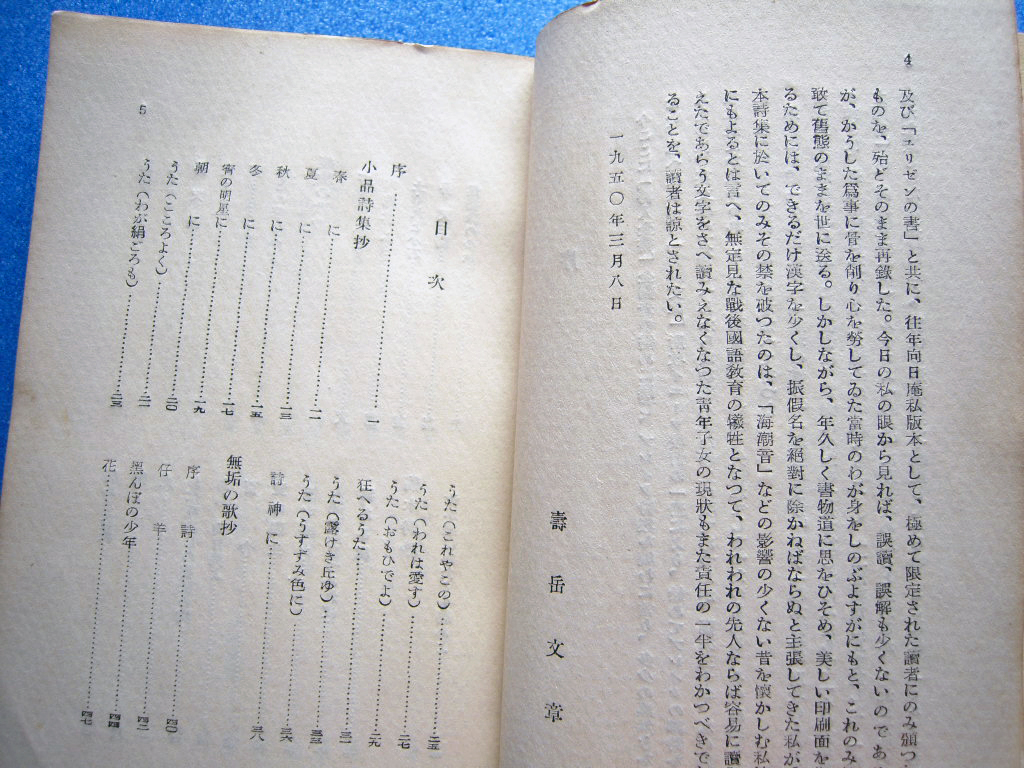 4
及び「ユリゼンの書」と共に、往年向日庵私版本として、極めて限定された讀者にのみ頒つ
ものを、殆どそのまま再錄した。今日の私の眼から見れば、誤讀、誤解も少くないのであ
が、かうした爲事に骨を削り心を勞してゐた當時のわが身をしのぶよすがにもと、これのみ
敢て舊態のままを世に送る。しかしながら、年久しく書物道に思をひそめ、美しい印刷面を
るためには、できるだけ漢字を少くし、振假名を絕對に除かねばならぬと主張してきた私が
本詩集に於いてのみその禁を破つたのは、「海潮音」などの影響の少くない昔を懷かしむ私
にもよるとは言へ、無定見な戰後國語敎育の犧牲となつて、われわれの先人ならば容易に讀
えたであらう文字をさへ讀みえなくなつた靑年子女の現狀もまた責任の一半をわかつべきで
ることを、讀者は諒とされたい。
一九五〇年三月八日
壽岳文章
5
目次
序
小品詩集抄 一
春に
夏に 一一
秋に 一三
冬に 一五
宵の明星に 一七
朝に 一九
うた(こころよく) 二〇
うた(わが絹ごろも) 二一
二三
うた(これやこの) 二五
うた(われは愛す) 二七
うた(おもひでよ) 二九
狂へるうた 三一
うた(露けき丘ゆ) 三三
うた(うすずみ色に) 三六
詩神に 三八
無垢の歌抄
序詩 四〇
仔羊 四二
黑んぼの少年 四四
花 四七